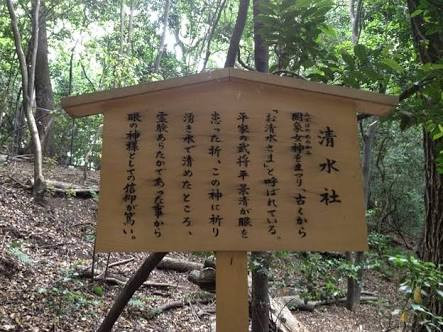 清水社
罔象女神を祀り、古くから
「お清水さま」と呼ばれている。
平家の武将平景清が眼を
患った折、この神に祈り
湧き水で清めたところ、
霊験あらたかであった事から
眼の神様としての信仰が篤い。